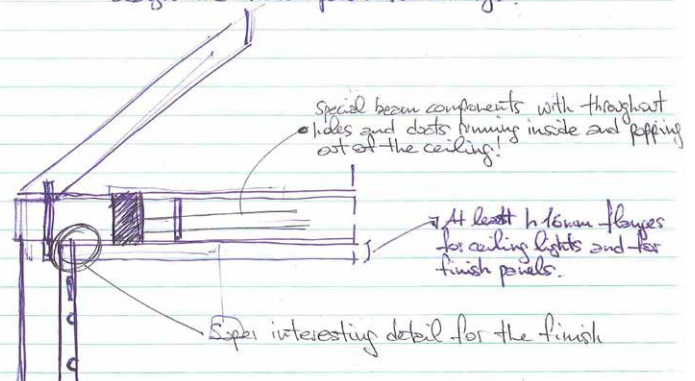 Special beam components with throughout
holes and ducts running inside and popping
out of the ceiling!
At least h 16mm flanges
for ceiling lights and for
finish panels.
Super interesting detail for the finish